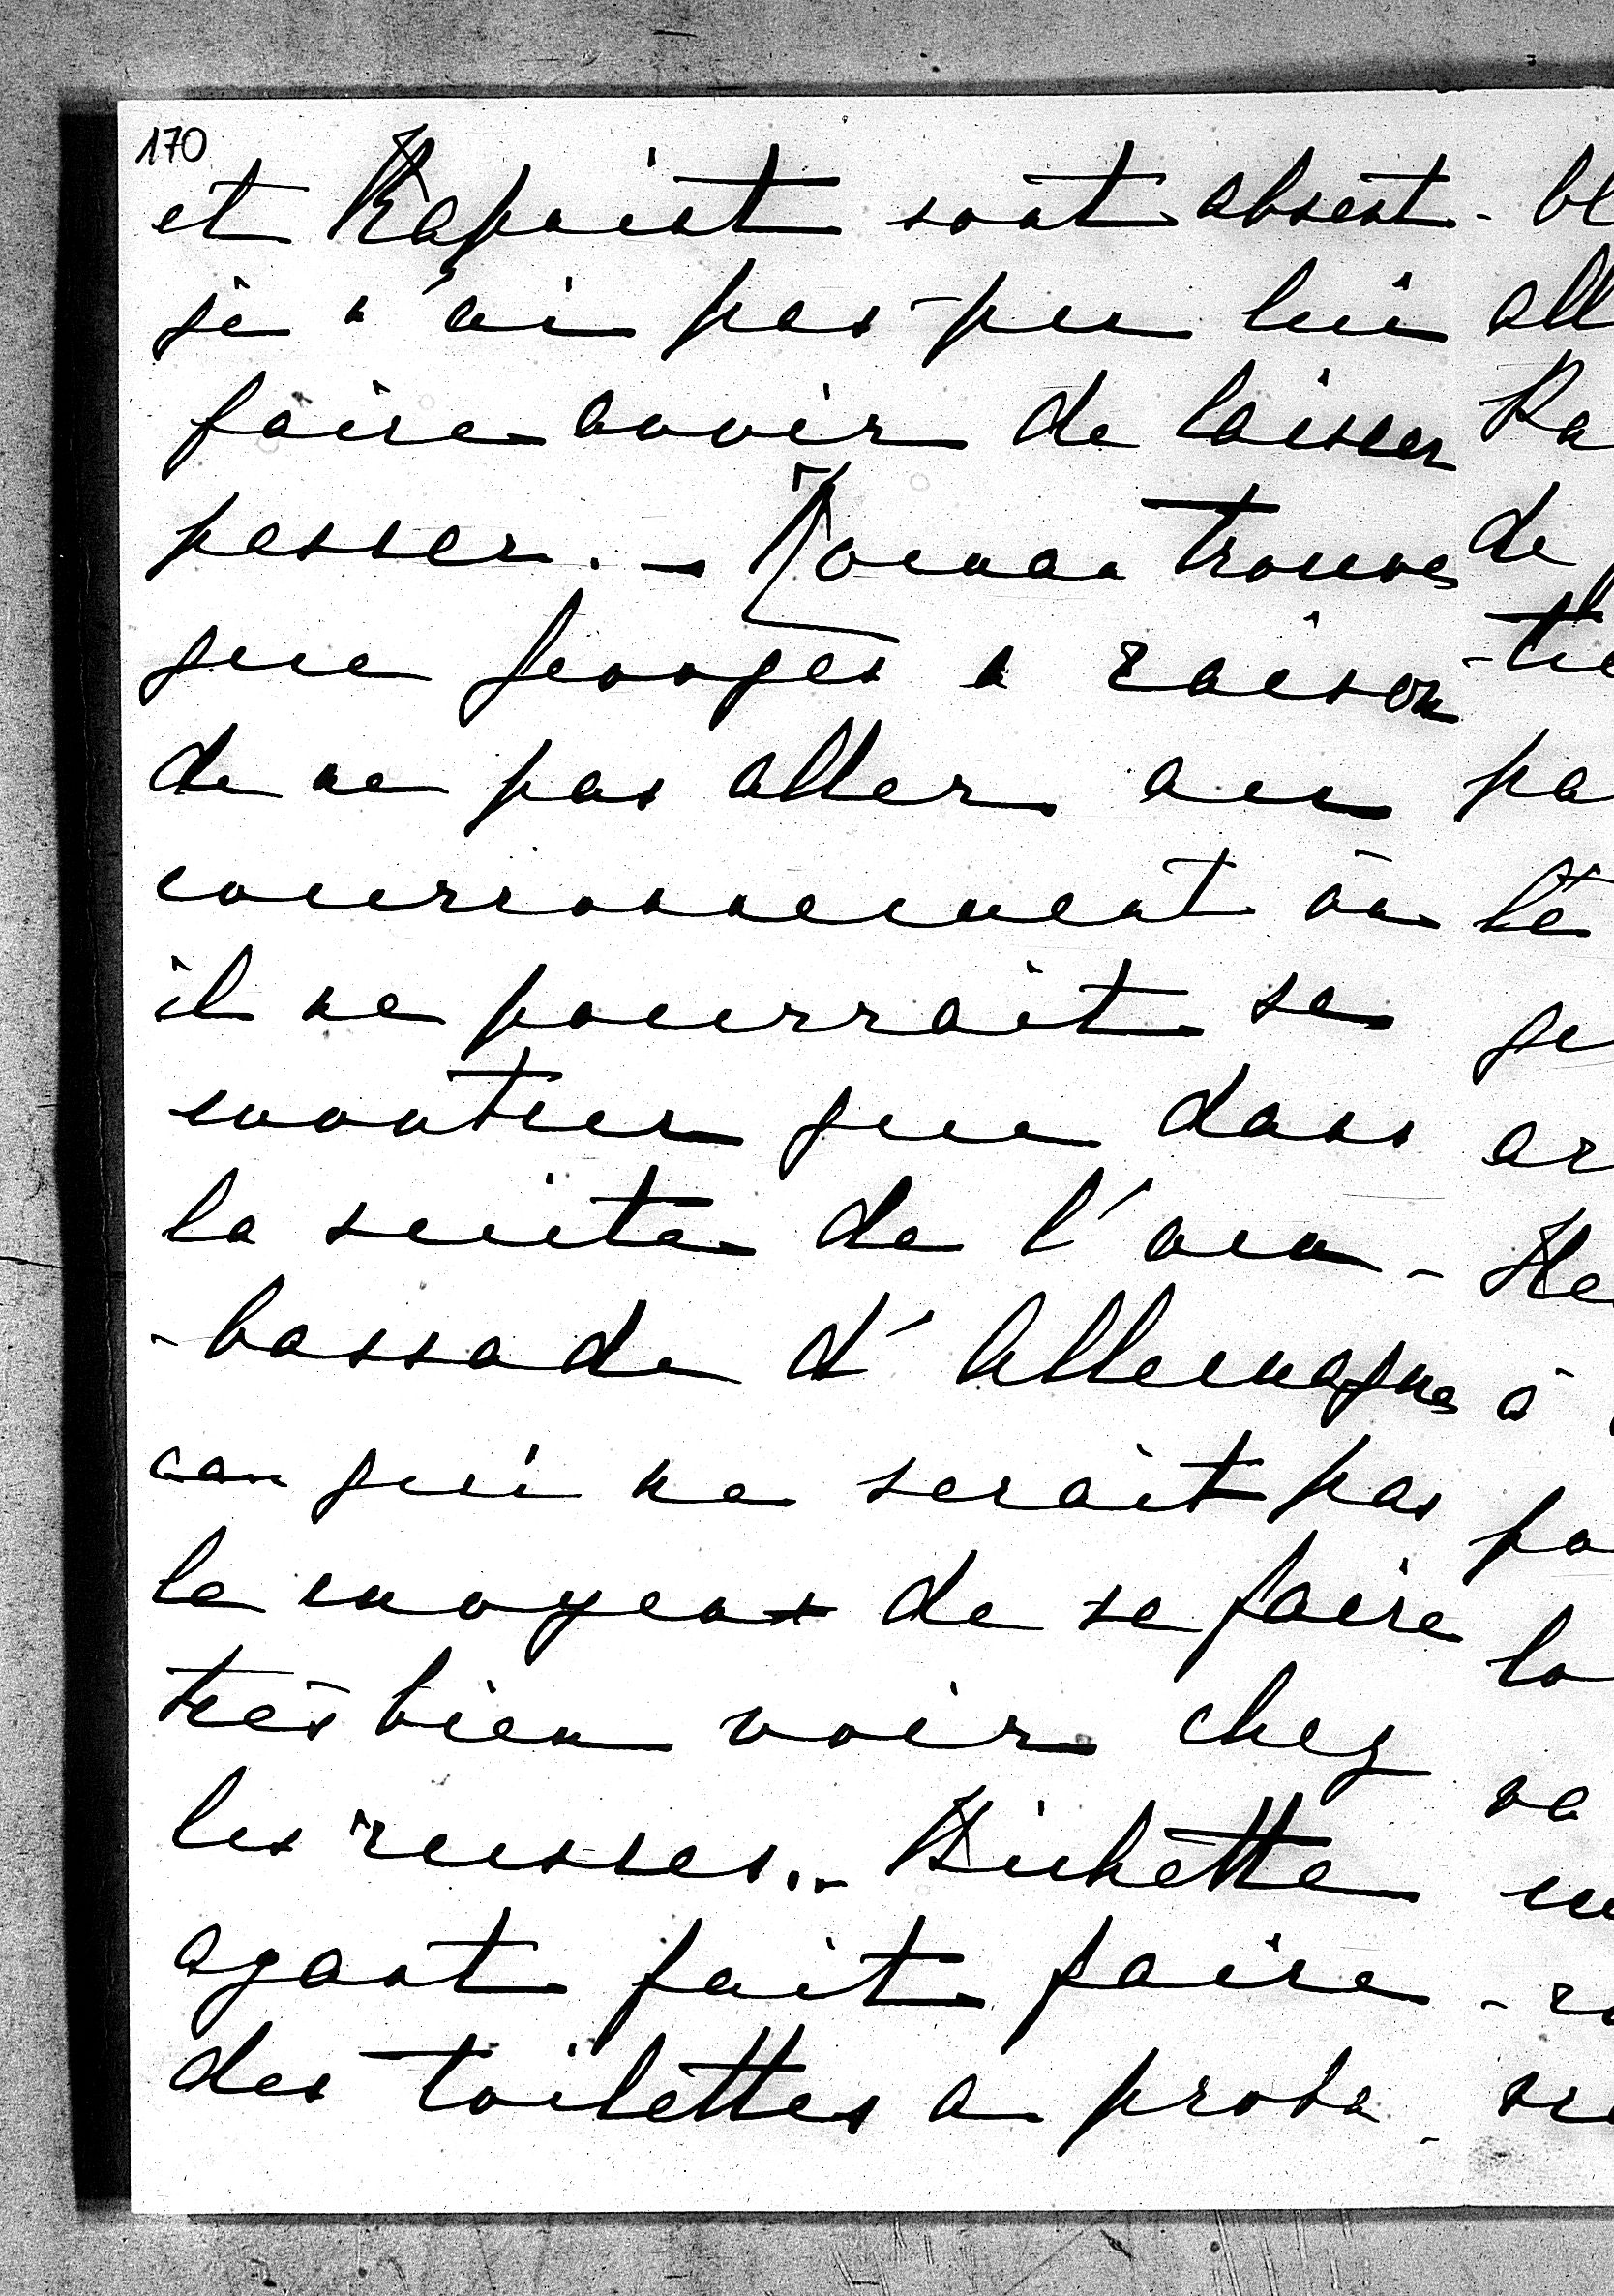 170
et Kapnist sont absent - bl
je n'ai pas pu lui all
faire avoir de laisser Ka
passer. - Touma trouve de
que Georges a raison - tie
de ne pas aller au pa
couronnement où té
il ne pourrait se ge
montrer que dans ar
la suite de l'am- He
-bassade d'Allemagne à
ce qui ne serait pas pa
le moyen de se faire la
très bien voir chez
les russes. - Bichette
ayant fait faire - ra
des toilettes a proba-